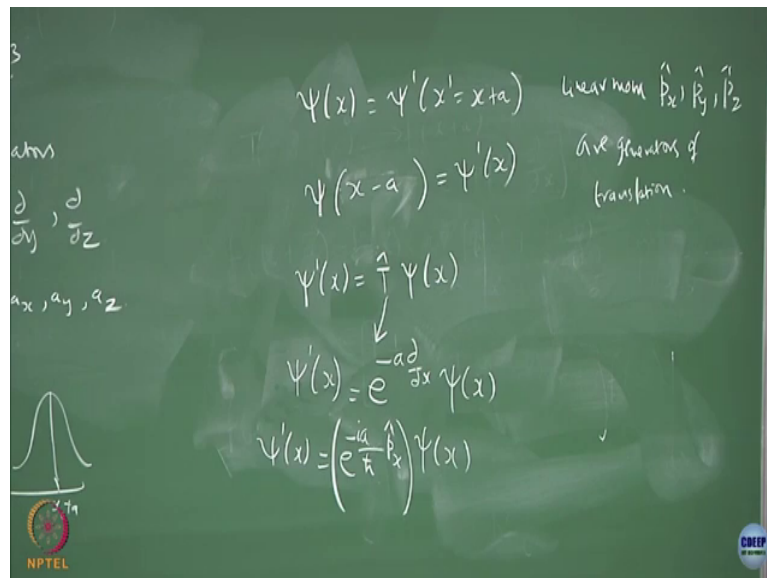 3
ators
∂/∂y, ∂/∂z
a_x, a_y, a_z
x+a
ψ(x) = ψ'(x' = x+a)
ψ(x-a) = ψ'(x)
ψ'(x) = T̂ ψ(x)
ψ'(x) = e^{-a ∂/∂x} ψ(x)
ψ'(x) = (e^{-ia/ħ p̂_x}) ψ(x)
linear mom p̂_x, p̂_y, p̂_z
are generators of
translation.
NPTEL
CDEEP